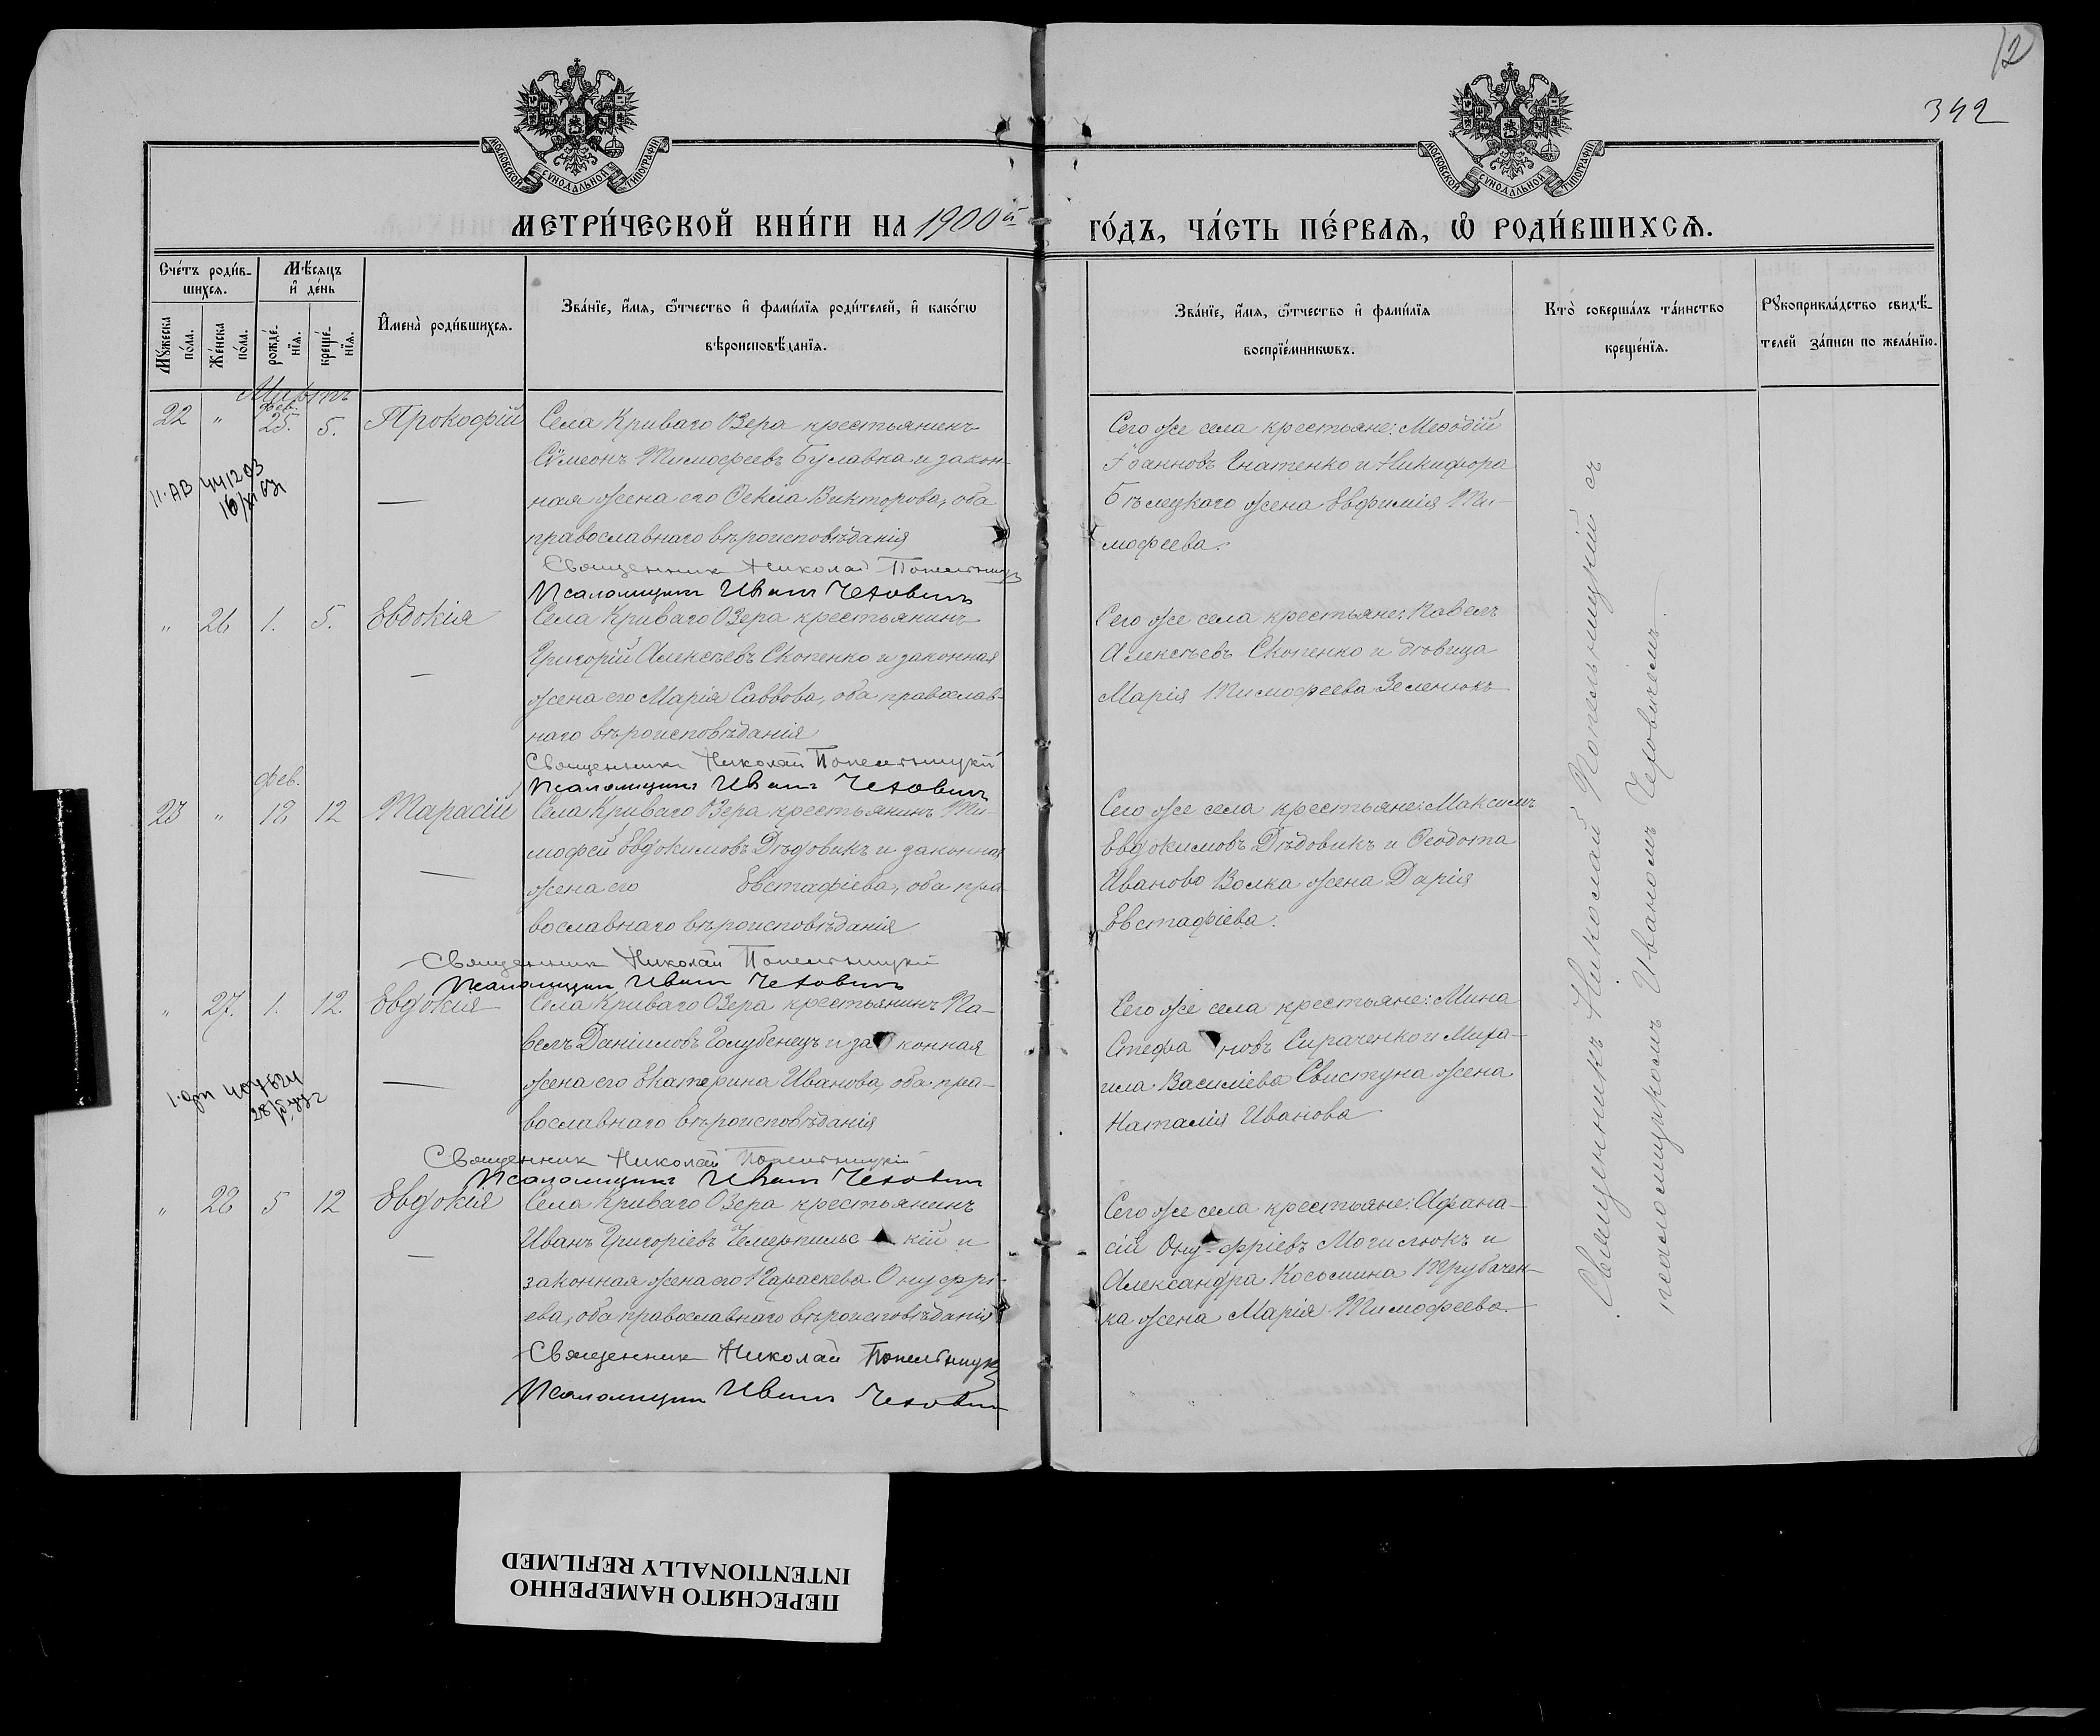 12
342
МОСКОВСКОЙ СѴНОДАЛЬНОЙ ТИПОГРАФІИ
МОСКОВСКОЙ СѴНОДАЛЬНОЙ ТИПОГРАФІИ
МЕТРИ́ЧЕСКОЙ КНИ́ГИ НА 1900й
ГО́ДЪ, ЧА́СТЬ ПЕ́РВАѦ, Ѽ РОДИ́ВШИХСѦ.
Сче́тъ роди́в-
шихсѧ.
Мꙋ́жеска по́ла.
Же́нска по́ла.
Мѣ́сѧцъ
и҆ де́нь
рожде́-
нїѧ.
креще́-
нїѧ.
И҆мена̀ роди́вшихсѧ.
Зва́нїе, и҆́мѧ, ѻ҆́тчество и҆ фами́лїѧ роди́телей, и҆ како́гѡ
вѣроисповѣ́данїѧ.
Зва́нїе, и҆́мѧ, ѻ҆́тчество и҆ фами́лїѧ
воспрїе́мникѡвъ.
Кто̀ соверша́лъ та́инство
креще́нїѧ.
Рꙋкоприкла́дство свидѣ́-
телей за́писи по жела́нїю.
Мартъ
22 " фев. 25. 5. Прокофій
Села Криваго Озера крестьянинъ
Сѵмеонъ Тимофеевъ Булавка и закон-
ная жена его Ѳекла Викторова, оба
православнаго вѣроисповѣданія
Священникъ Николай Попельницкій
Псаломщикъ Иванъ Чеховичъ
Сего же села крестьяне: Меѳодій
Іоанновъ Гнатенко и Никифора
Бѣлецкаго жена Евфимія Ти-
мофеева.
II-АВ 441203
" 26 1. 5. Евдокія
Села Криваго Озера крестьянинъ
Григорій Алексѣевъ Скопенко и законная
жена его Марія Саввова, оба православ-
наго вѣроисповѣданія
Священникъ Николай Попельницкій
Псаломщикъ Иванъ Чеховичъ
Сего же села крестьяне: Павелъ
Алексѣевъ Скопенко и дѣвица
Марія Тимофеева Зеленюкъ
23 " фев. 18 12 Тарасій
Села Криваго Озера крестьянинъ Ти-
мофей Евдокимовъ Дѣдовикъ и законная
жена его Евстафіева, оба пра-
вославнаго вѣроисповѣданія
Священникъ Николай Попельницкій
Псаломщикъ Иванъ Чеховичъ
Сего же села крестьяне: Максимъ
Евдокимовъ Дѣдовикъ и Ѳеодота
Иванова Волка жена Дарія
Евстафіева.
" 27. 1. 12. Евдокія
Села Криваго Озера крестьянинъ Па-
велъ Даніиловъ Голубенецъ и законная
жена его Екатерина Иванова, оба пра-
вославнаго вѣроисповѣданія
Священникъ Николай Попельницкій
Псаломщикъ Иванъ Чеховичъ
Сего же села крестьяне: Мина
Стефановъ Сираченко и Миха-
ила Василіева Свистуна жена
Наталія Иванова
" 28 5 12 Евдокія
Села Криваго Озера крестьянинъ
Иванъ Григоріевъ Чемерпильскій и
законная жена его Параскева Онуфрі-
ева, оба православнаго вѣроисповѣданія
Священникъ Николай Попельницкій
Псаломщикъ Иванъ Чеховичъ
Сего же села крестьяне: Афана-
сій Онуфріевъ Могилюкъ и
Александра Косьмина Трубачен-
ка жена Марія Тимофеева.
Священникъ Николай Попельницкій съ
псаломщикомъ Иваномъ Чеховичемъ.
ПЕРЕСНЯТО НАМЕРЕННО
INTENTIONALLY REFILMED